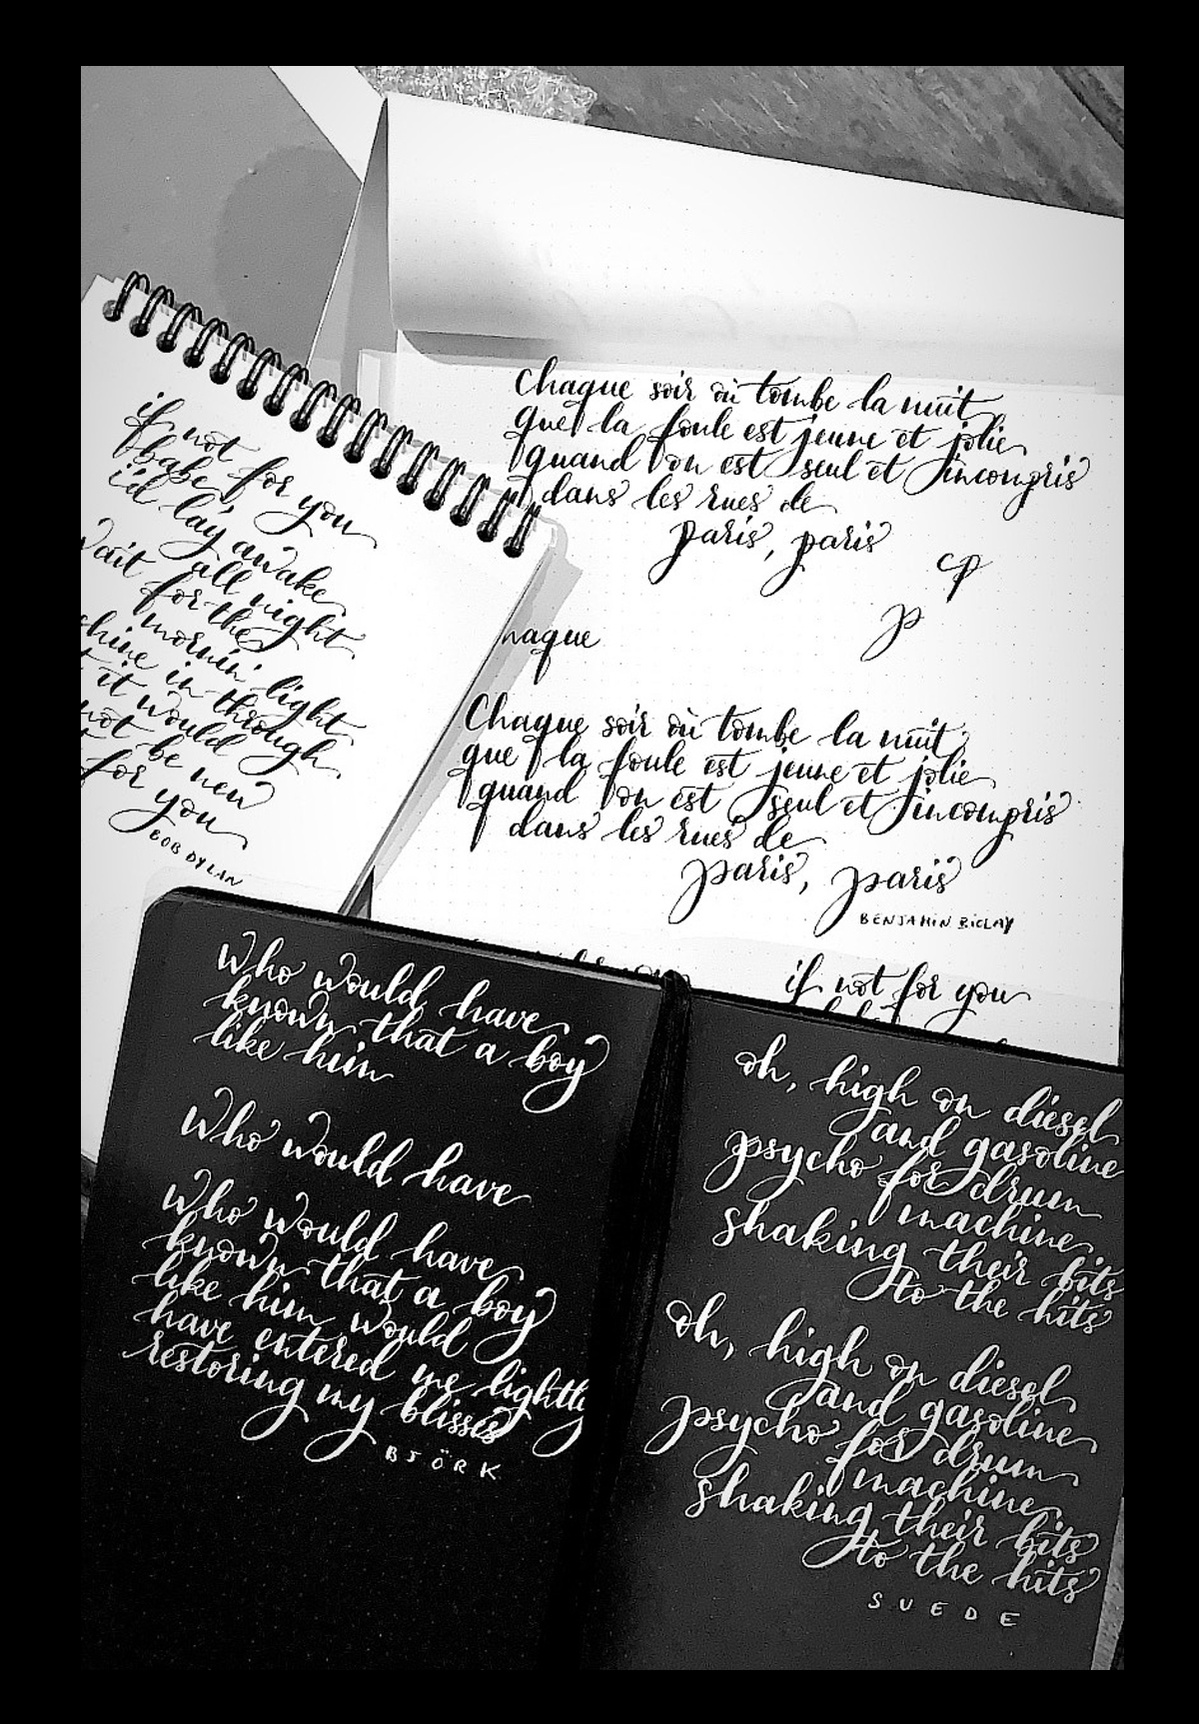 if not for you
babe
i'd lay awake
all night
wait for the
mornin' light
shine in through
it would
not be new
for you
BOB DYLAN
chaque soir où tombe la nuit
que la foule est jeune et jolie
quand l'on est seul et incompris
dans les rues de
paris, paris
p
p
haque
Chaque soir où tombe la nuit
que la foule est jeune et jolie
quand l'on est seul et incompris
dans les rues de
paris, paris
BENJAMIN BIOLAY
if not for you
Who would have
known that a boy
like him
Who would have
Who would have
known that a boy
like him would
have entered me lightly
restoring my blisses
BJÖRK
oh, high on diesel
and gasoline
psycho for drum
machine
shaking their bits
to the hits
oh, high on diesel
and gasoline
psycho for drum
machine
shaking their bits
to the hits
SUEDE